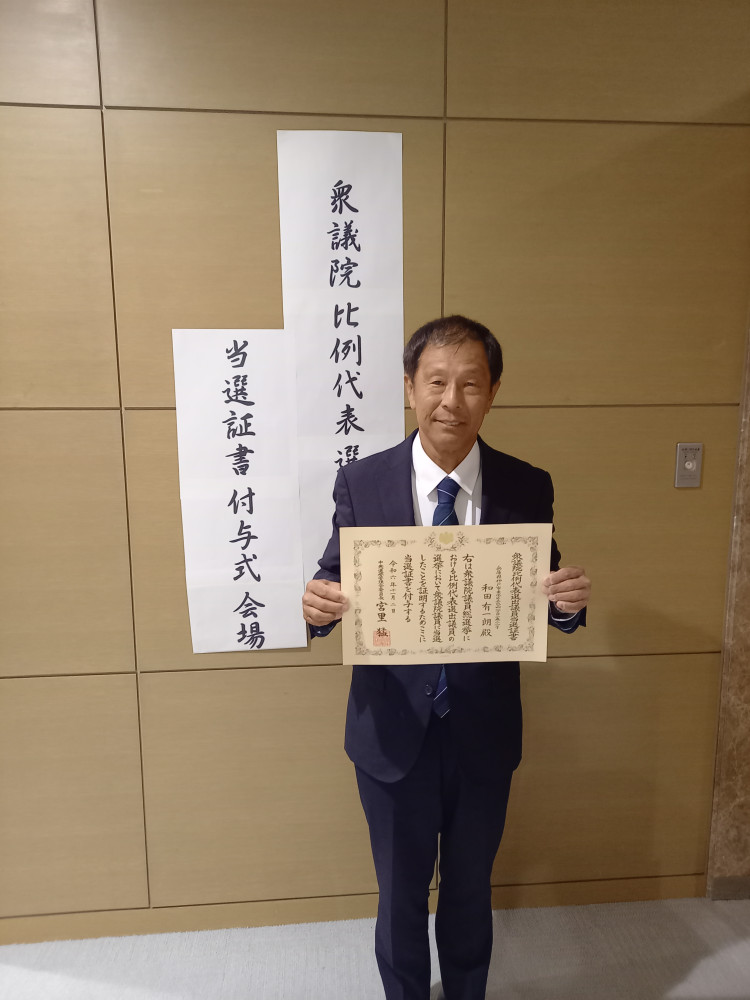 衆議院 比例代表選
当選証書 付与式 会場
衆議院比例代表選出議員当選証書
和田 有一朗 殿
右は衆議院議員総選挙に
おける比例代表選出議員の
選挙において衆議院議員に当選
したことを証明するためここに
当選証書を付与する
令和六年十一月二日
中央選挙管理会委員長 宮里 猛